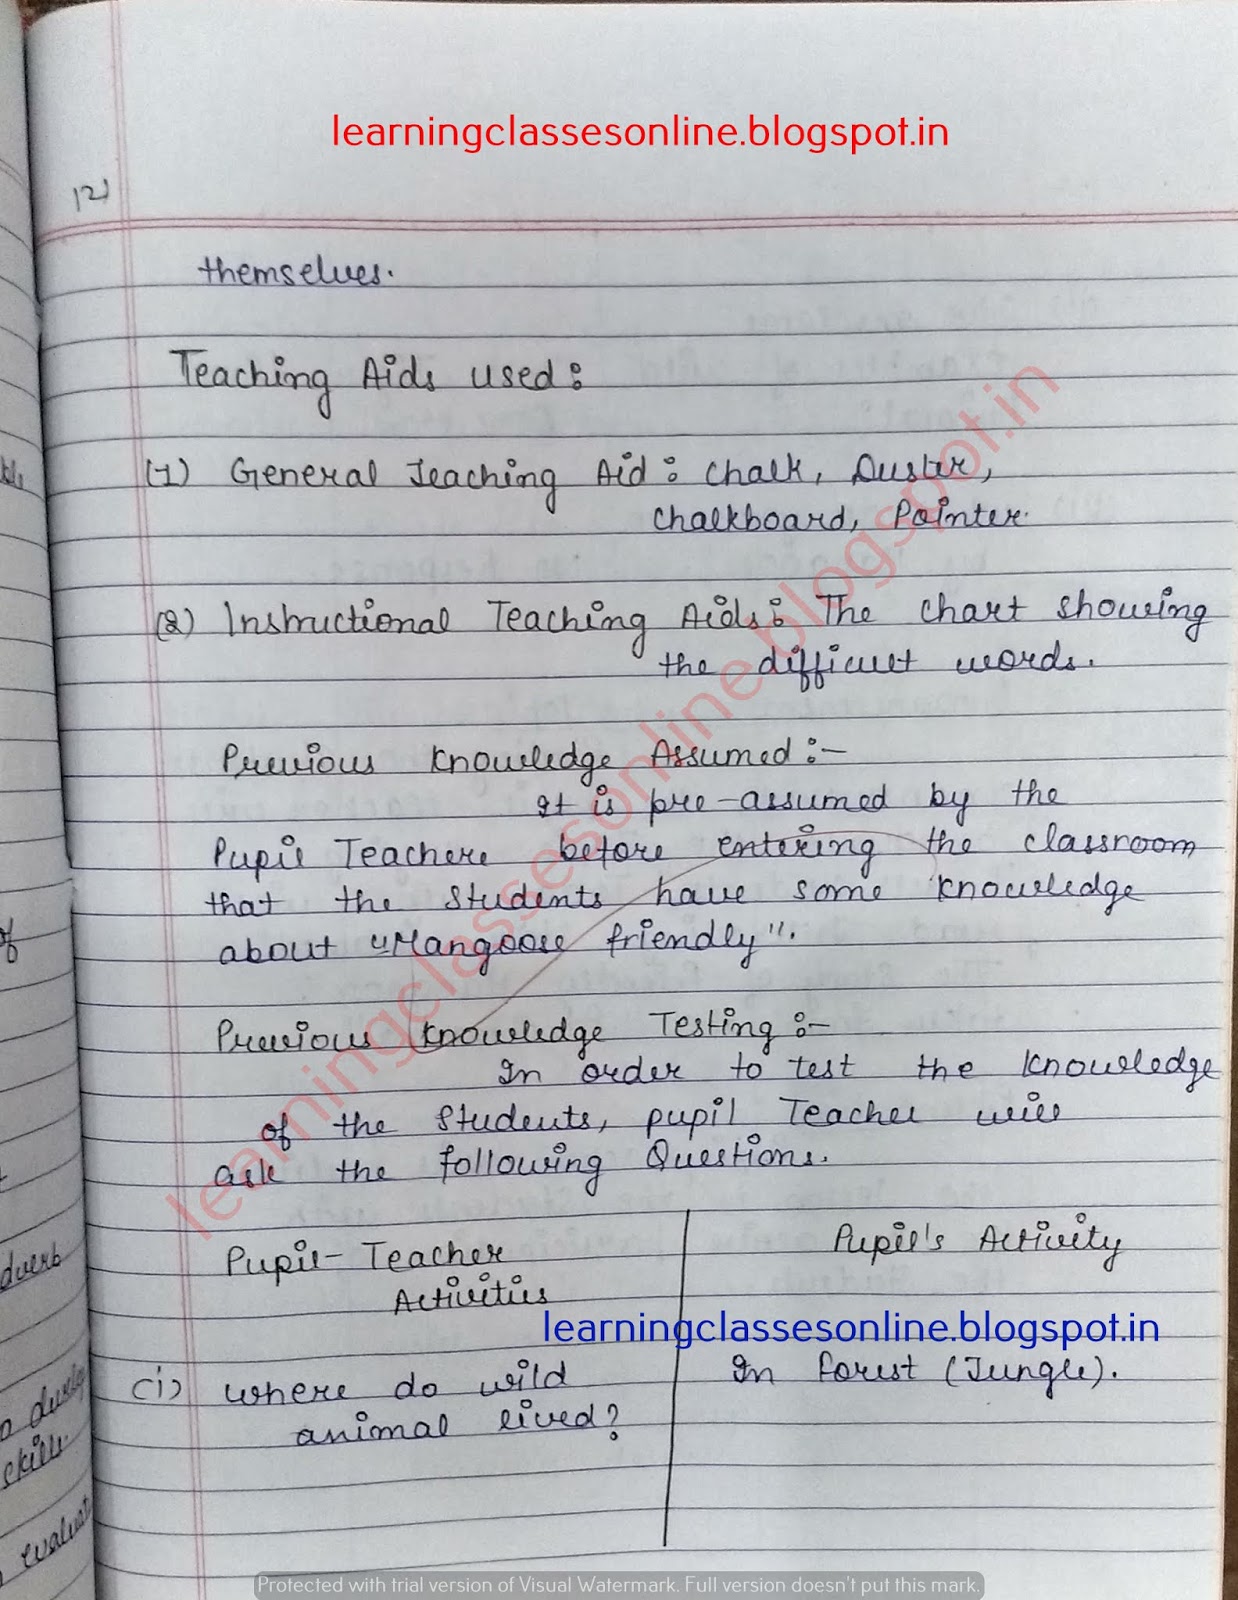 learningclassesonline.blogspot.in
121
themselves.
Teaching Aids used:
(1) General Teaching Aid: Chalk, Duster,
Chalkboard, Pointer.
(2) Instructional Teaching Aids: The chart showing
the difficult words.
Previous Knowledge Assumed :-
It is pre-assumed by the
Pupil Teachere before entering the classroom
that the students have some knowledge
about "Mangoose friendly".
Previous Knowledge Testing :-
In order to test the knowledge
of the students, pupil Teacher will
ask the following Questions.
Pupil-Teacher
Activities
Pupil's Activity
learningclassesonline.blogspot.in
(i) where do wild
animal lived?
In forest (Jungle).
learningclassesonline.blogspot.in
of
skills.
Protected with trial version of Visual Watermark. Full version doesn't put this mark.